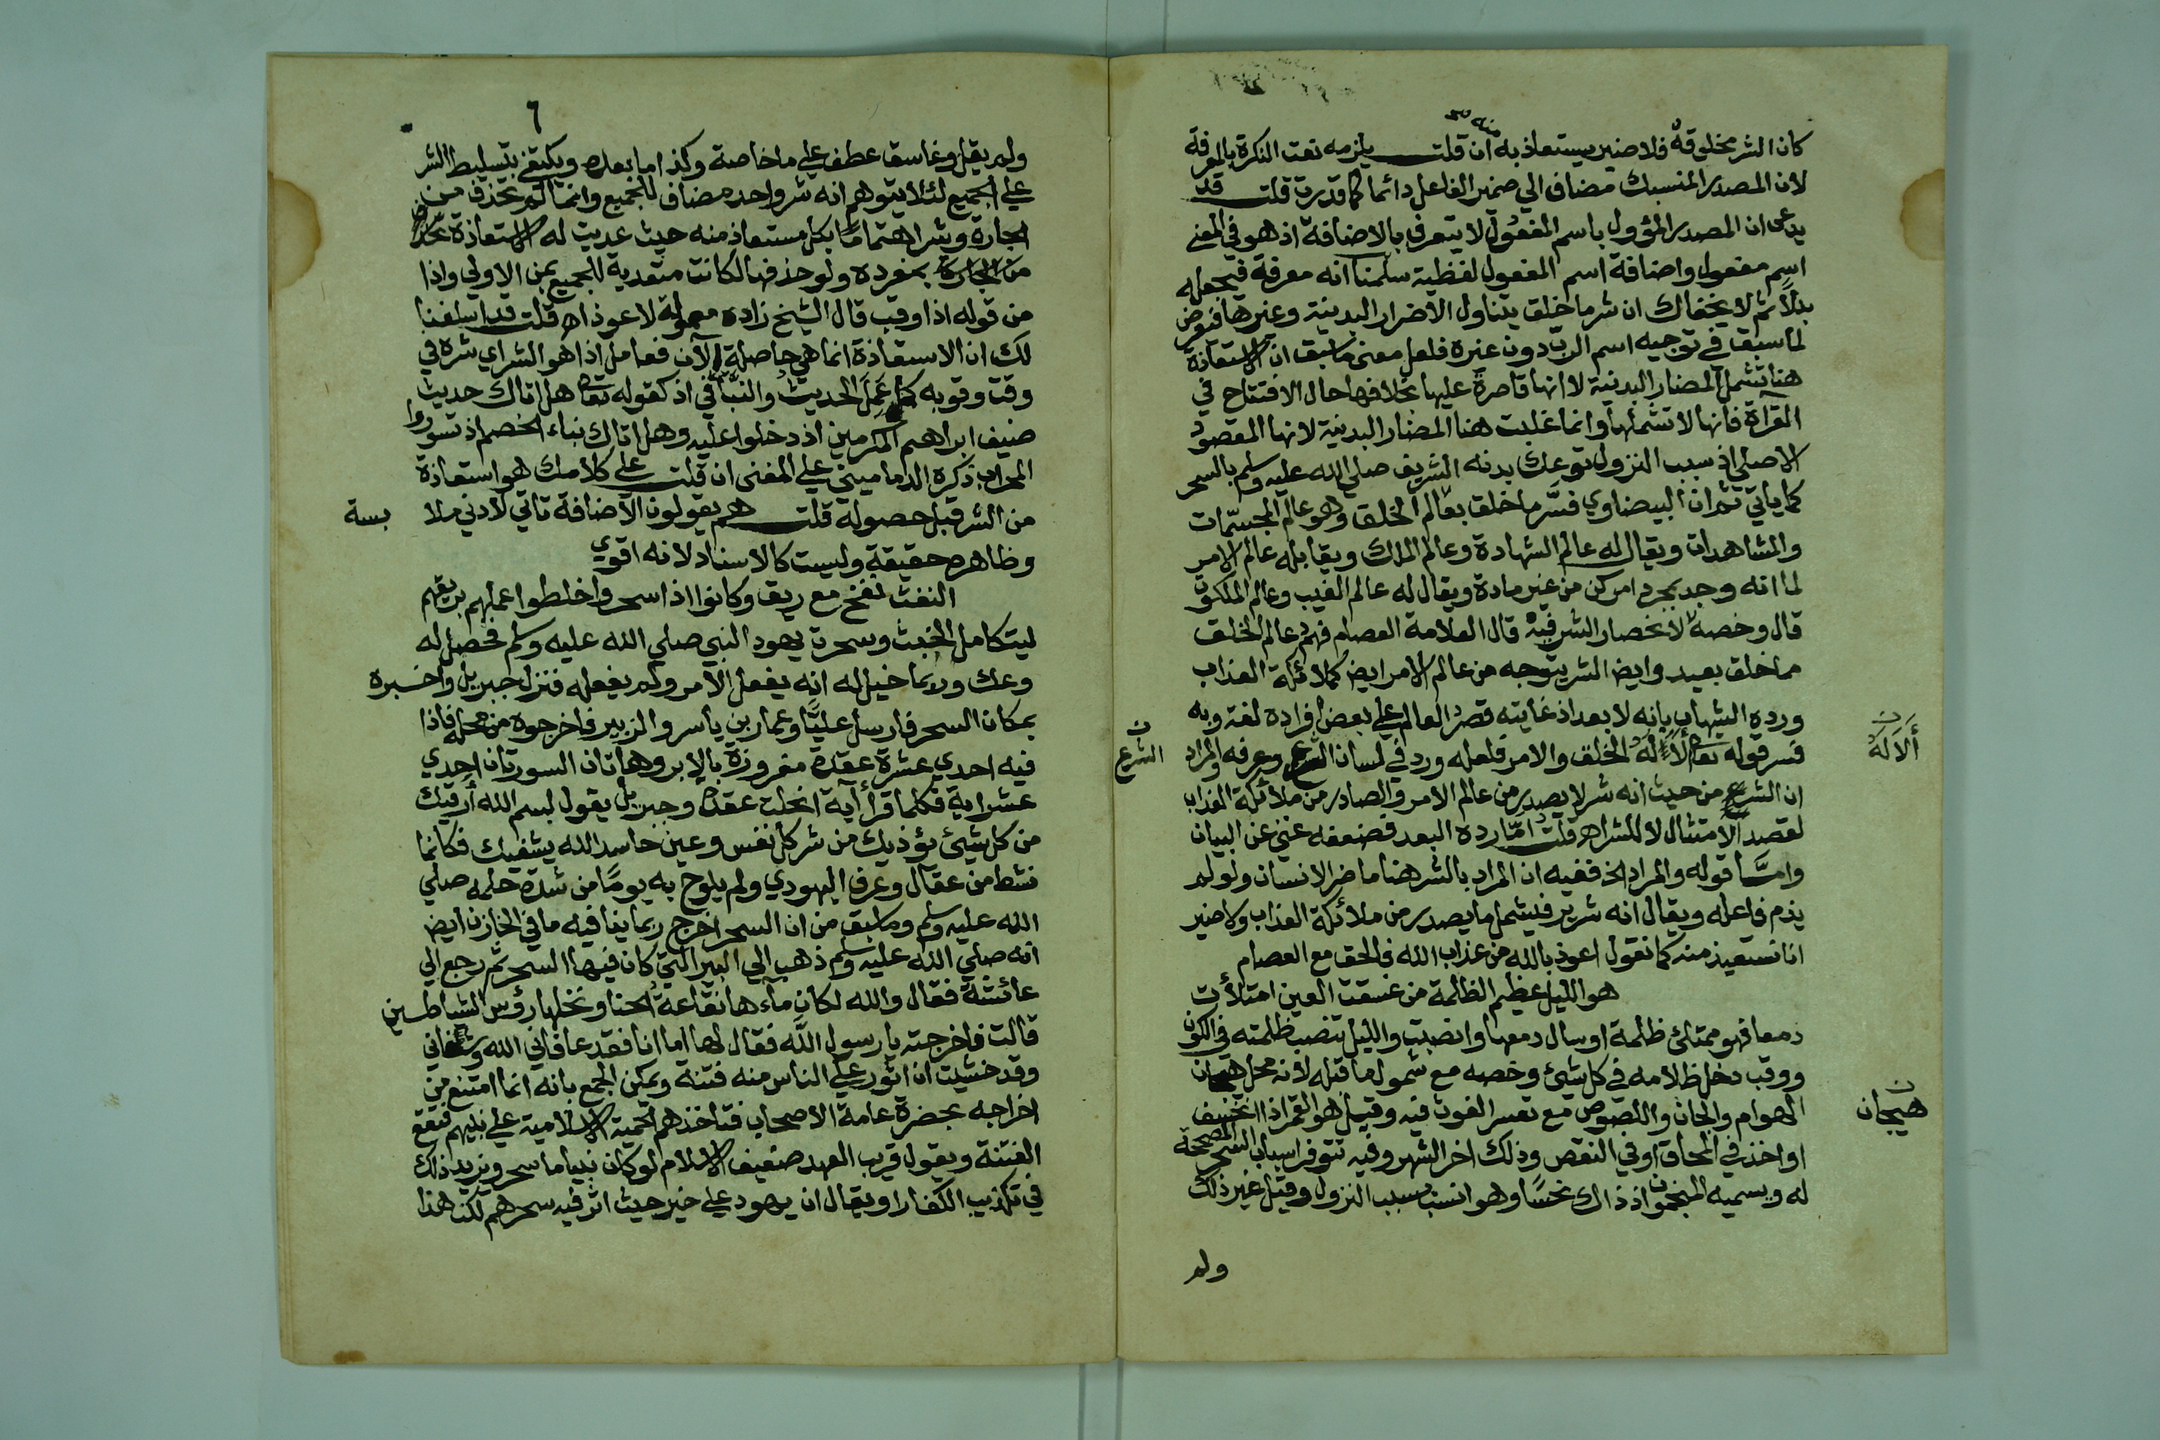 كان الشر مخلوقة فلا ضير يستعاذ به منه ان قلت يلزمه نعت النكرة بالمعرفة
لان المصدر المنسبك مضاف الي ضمير الفاعل دائما كما قدرت قلت قد
يدعي ان المصدر المؤول باسم المفعول لا يتعرف بالاضافة اذ هو في المعني
اسم مفعول واضافة اسم المفعول لفظية سلمنا انه معرفة فيجعله
بدلا ثم لا يخفاك ان شر ما خلق يتناول الاضرار البدنية وغيرها
لما سبق في توجيه اسم الرب دون غيره فلعل معني ما سبق ان الاستعاذة
هنا تشمل المضار البدنية لا انها قاصرة عليها بخلافها حال الافتتاح في
القراة فانها لا تشملها وانما غلبت هنا المضار البدنية لانها المقصود
الاصلي اذ سبب النزول توعك بدنه الشريف صلي الله عليه وسلم بالسحر
كما ياتي ثم ان البيضاوي فسر ما خلق بعالم الخلق وهو عالم المجسمات
والمشاهدات ويقال له عالم الشهادة وعالم الملك ويقابله عالم الامر
لما انه وجد بمجرد امر كن من غير مادة ويقال له عالم الغيب وعالم الملكوت
قال وخصه لانحصار الشر فيه قال العلامة العصام فهم عالم الخلق
مما خلق بعيد وايض الشر يتوجه من عالم الامر ايض كملائكة العذاب
ورده الشهاب بانه لا بعد اذ غايته قصر العالم علي بعض افراده لغة وبه
فسر قوله تعالي الا له الخلق والامر فلعله ورد في لسان الشرع وعرفه والمراد
ن
ألا له
ن
الشرع
ان الشرع من حيث انه شر لا يصدر من عالم الامر والصادر من ملائكة العذاب
لقصد الامتثال لا للشر اهـ قلت اما رده البعد فضعفه غني عن البيان
واما قوله والمراد الخ ففيه ان المراد بالشر هنا ما ضر الانسان ولو لم
يذم فاعله ويقال انه شرير فيشمل ما يصدر من ملائكة العذاب ولا ضير
انا نستعيذ منه كما نقول اعوذ بالله من عذاب الله فالحق مع العصام
هو الليل عظيم الظلمة من غسقت العين امتلأت
دمعا فهو ممتلئ ظلمة او سال دمعها وانصبت والليل تنصب ظلمته في الكون
ووقب دخل ظلامه في كل شئ وخصه مع شمول ما قبله لانه محل هيجان
ن
هيجان
الهوام والجان واللصوص مع تعسر الغوث فيه وقيل هو القمر اذا انخسف
او اخذ في المحاق او في النقص وذلك اخر الشهر وفيه تتوفر اسباب السحر المصححة
له ويسميه المنجمون اذ ذاك نحسا وهو انسب بسبب النزول وقيل غير ذلك
ولم
٦
ولم يقل وغاسق عطف علي ما خاصة وكذا ما بعده ويكتفي بتسليط الشر
علي الجميع لئلا يتوهم انه شر واحد مضاف للجميع وانما لم تحذف من
الجارة وشر اهتماما بكل مستعاذ منه حيث عديت له الاستعاذة
من الجارة بمفرده ولو حذفها لكانت متعدية للجميع بمن الاولي واذا
من قوله اذا وقب قال الشيخ زاده معمولة لاعوذ اهـ قلت قد اسلفنا
لك ان الاستعاذة انما هي حاصلة الآن فعامل اذا هو الشر اي شره في
وقت وقوبه كما عمل الحديث والنبأ في اذ كقوله تعالي هل اتاك حديث
ضيف ابراهيم المكرمين اذ دخلوا عليه وهل اتاك نباء الخصم اذ تسوروا
المحراب ذكره الدماميني علي المغني ان قلت علي كلامك هو استعاذة
من الشر قبل حصوله قلت هم يقولون الاضافة تاتي لادني ملا بسة
وظاهره حقيقة وليست كالاسناد لانه اقوي
النفث نفخ مع ريق وكانوا اذا سحروا خلطوا عملهم بريقهم
ليتكامل الخبث وسحرت يهود النبي صلي الله عليه وسلم فحصل له
وعك وربما خيل له انه يفعل الامر ولم يفعله فنزل جبريل واخبره
بمكان السحر فارسل عليا وعمار بن ياسر والزبير فاخرجوه من محله فاذا
فيه احدي عشرة عقدة مغروزة بالابر وهاتان السورتان احدي
عشر اية فكلما قرأ آية انحلت عقدة وجبريل يقول بسم الله أرقيك
من كل شيئ يؤذيك من شر كل نفس وعين حاسد الله يشفيك فكانما
نشط من عقال وعرف اليهودي ولم يلوح به يوما من شدة حلمه صلي
الله عليه وسلم وما سبق من ان السحر اخرج ربما ينافيه ما في الخازن ايض
انه صلي الله عليه وسلم ذهب الي البير التي كان فيها السحر ثم رجع الي
عائشة فقال والله لكان ماءها نقاعة الحنا ونخلها رؤس الشياطين
قالت فاخرجته يا رسول الله فقال لها اما انا فقد عافاني الله وشفاني
وقد خشيت ان اثور علي الناس منه فتنة ويمكن الجمع بانه انما امتنع من
اخراجه بحضرة عامة الاصحاب فتاخذهم الحمية الاسلامية علي نبيهم فتقع
الفتنة ويقول قريب العهد ضعيف الاسلام لو كان نبيا ما سحر ويزيد ذلك
في تكذيب الكفار او يقال ان يهود علي خير حيث اثر فيه سحرهم لكن هذا